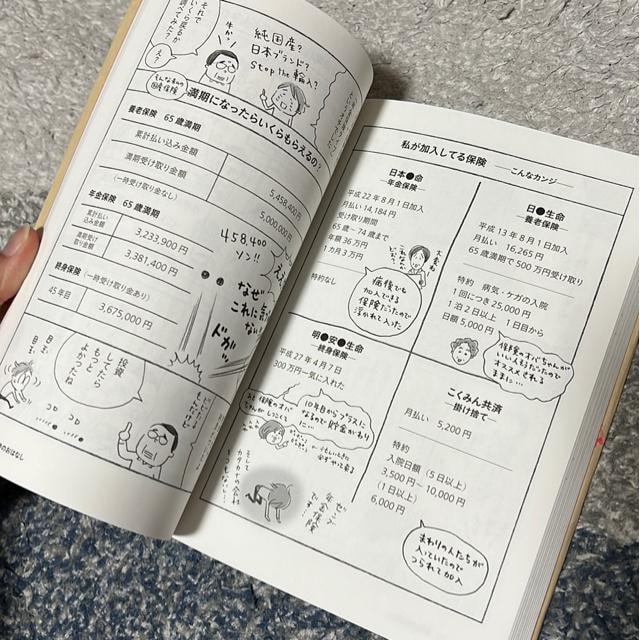 それで
いくら戻るか
調べてみた?
え?
牛かっ
純国産?
日本ブランド?
Stop the 輸入?
そんな私の
国産保険
満期になったらいくらもらえるの?
養老保険 65歳満期
累計払い込み金額 5,458,400円
満期受け取り金額 5,000,000円
(一時受け取り金なし)
458,400
ソン!!
年金保険 65歳満期
累計払い
込み金額 3,233,900円
満期受け
取り金額 3,381,400円
終身保険 (一時受け取り金あり)
45年目 3,675,000円
なぜ
これに
ドガッ
投資
してたら
もっと
よかったね
コロ コロ
のおはなし
私が加入してる保険
こんなカンジ
日本●命
―年金保険―
平成22年8月1日加入
月払い 14,184円
受け取り期間
65歳~74歳まで
年額36万円
1カ月3万円
特約なし
病後でも
加入できる
保険だったので
浮かれて入った
日●生命
―養老保険―
平成13年8月1日加入
月払い 16,265円
65歳満期で500万円受け取り
特約 病気・ケガの入院
1回につき25,000円
1泊2日以上 1日目から
日額5,000円
保険のオバちゃんが
いいえもうだったので
オススメされる
ままに…
明●安●生命
―終身保険―
平成27年4月7日
300万円一気に入れた
10年目からプラスに
なるため貯金がわり
に…
こくみん共済
―掛け捨て―
月払い 5,200円
特約
入院日額 (5日以上)
3,500円~10,000円
(1日以上)
6,000円
まわりの人たちが
入っていたので
つられて加入